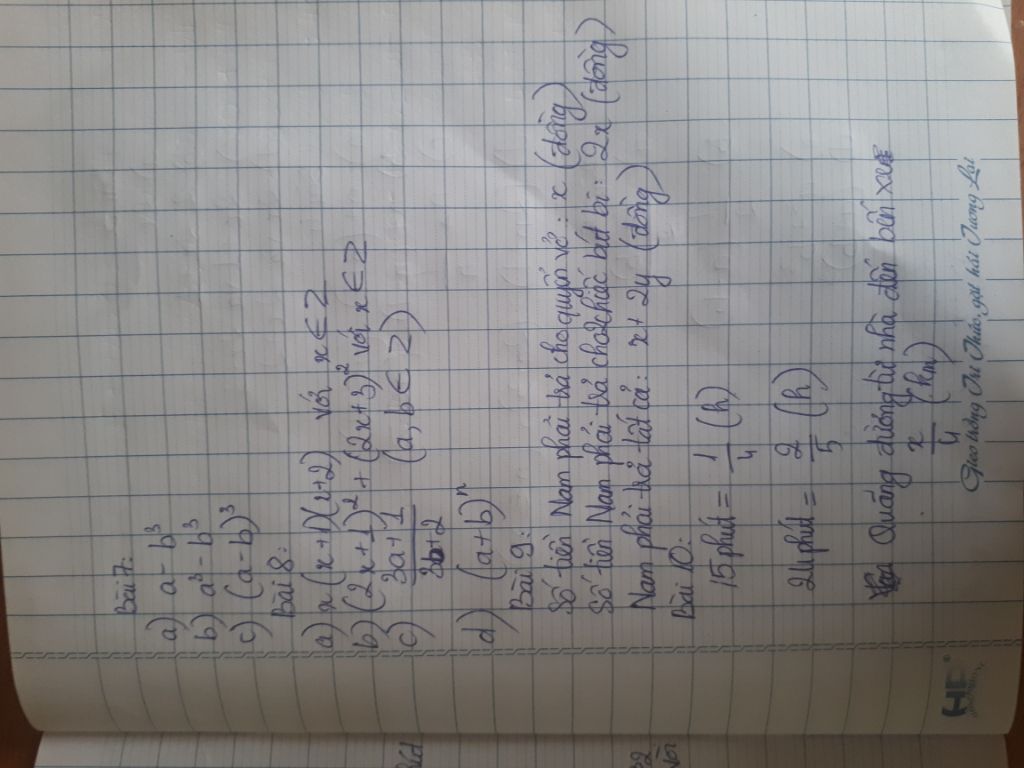 Bài 7:
a) a - b³
b) a³ - b³
c) (a - b)³
Bài 8:
a) x(x+1)(x+2) với x ∈ Z
b) (2x+1)² + (2x+3)² với x ∈ Z
c) (3a+1)/(3b+2) (a, b ∈ Z)
d) (a+b)ⁿ
Bài 9:
Số tiền Nam phải trả cho quyển vở: x (đồng)
Số tiền Nam phải trả cho 2 chiếc bút bi: 2x (đồng)
Nam phải trả tất cả: x + 2y (đồng)
Bài 10:
15 phút = 1/4 (h)
24 phút = 2/5 (h)
Quãng đường từ nhà đến bến xe
x/4 (km)
HP
Giao hồng Tri Thức, gặt hái Tương Lai